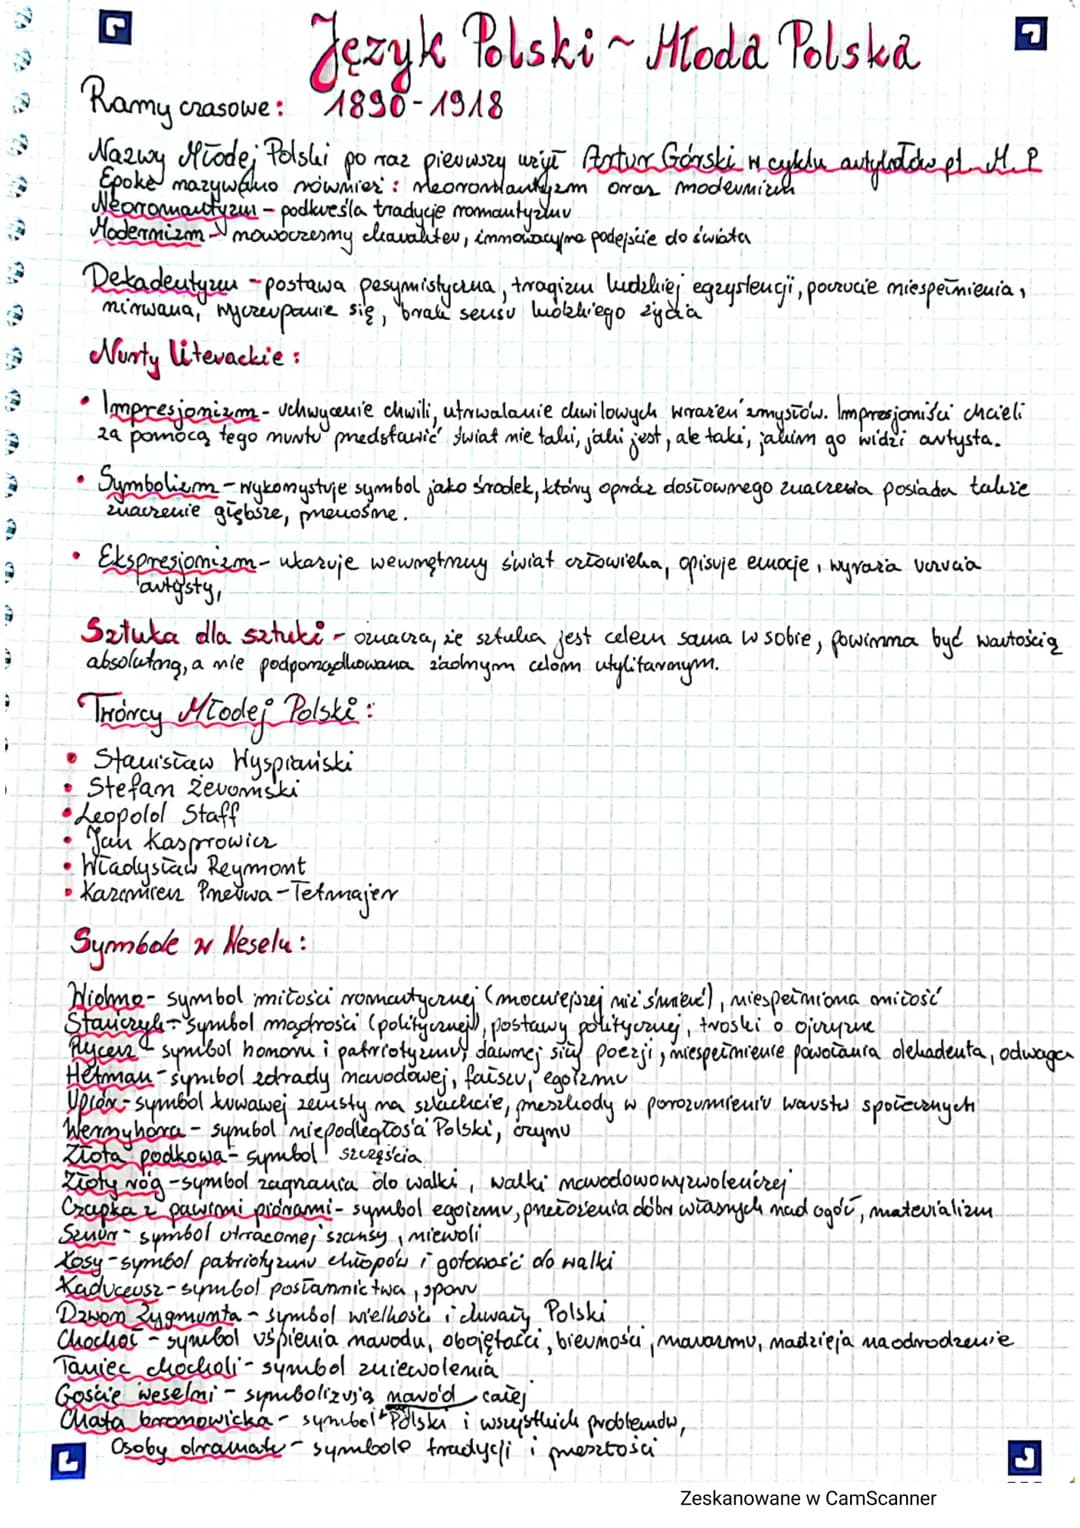 Język Polski ~ Młoda Polska
Ramy czasowe: 1890-1918
Nazwy Młodej Polski po raz pierwszy użył Artur Górski w cyklu artykułów pt. M.P
Epokę nazywano również: neoromantyzm oraz modernizm
Neoromantyzm - podkreśla tradycje romantyzmu
Modernizm - nowoczesny charakter, innowacyjne podejście do świata
Dekadentyzm - postawa pesymistyczna, tragizm ludzkiej egzystencji, poczucie niespełnienia,
nirwana, wyczerpanie się, brak sensu ludzkiego życia
Nurty literackie:
• Impresjonizm - uchwycenie chwili, utrwalanie chwilowych wrażeń zmysłów. Impresjoniści chcieli
za pomocą tego nurtu przedstawić świat nie taki, jaki jest, ale taki, jakim go widzi artysta.
• Symbolizm - wykorzystuje symbol jako środek, który oprócz dosłownego znaczenia posiada także
znaczenie głębsze, przenośne.
• Ekspresjonizm - ukazuje wewnętrzny świat człowieka, opisuje emocje, wyraża uczucia
artysty,
Sztuka dla sztuki - oznacza, że sztuka jest celem sama w sobie, powinna być wartością
absolutną, a nie podporządkowana żadnym celom utylitarnym.
Twórcy Młodej Polski:
• Stanisław Wyspiański
• Stefan Żeromski
• Leopold Staff
• Jan Kasprowicz
• Władysław Reymont
• Kazimierz Przerwa-Tetmajer
Symbole w Weselu:
Widmo - symbol miłości romantycznej (mocniejszej niż śmierć), niespełniona miłość
Stańczyk - symbol mądrości (politycznej), postawy politycznej, troski o ojczyznę
Rycerz - symbol honoru i patriotyzmu, dawnej siły poezji, niespełnienie powołania dekadenta, odwaga
Hetman - symbol zdrady narodowej, fałszu, egoizmu
Upiór - symbol krwawej zemsty na szlachcie, przeszkody w porozumieniu warstw społecznych
Wernyhora - symbol niepodległości Polski, czynu
Złota podkowa - symbol szczęścia
Złoty róg - symbol zagrania do walki, walki narodowowyzwoleńczej
Czapka z pawimi piórami - symbol egoizmu, przełożenia dóbr własnych nad ogół, materializm
Sznur - symbol utraconej szansy, niewoli
Kosy - symbol patriotyzmu chłopów i gotowość do walki
Kaduceusz - symbol posłannictwa, sporu
Dzwon Zygmunta - symbol wielkości i chwały Polski
Chochoł - symbol uśpienia narodu, obojętości, bierności, marazmu, nadzieja na odrodzenie
Taniec chocholi - symbol zniewolenia
Goście weselni - symbolizują naród całej
Chata bronowicka - symbol Polski i wszystkich problemów,
Osoby dramatu - symbole tradycji i przeszłości
Zeskanowane w CamScanner